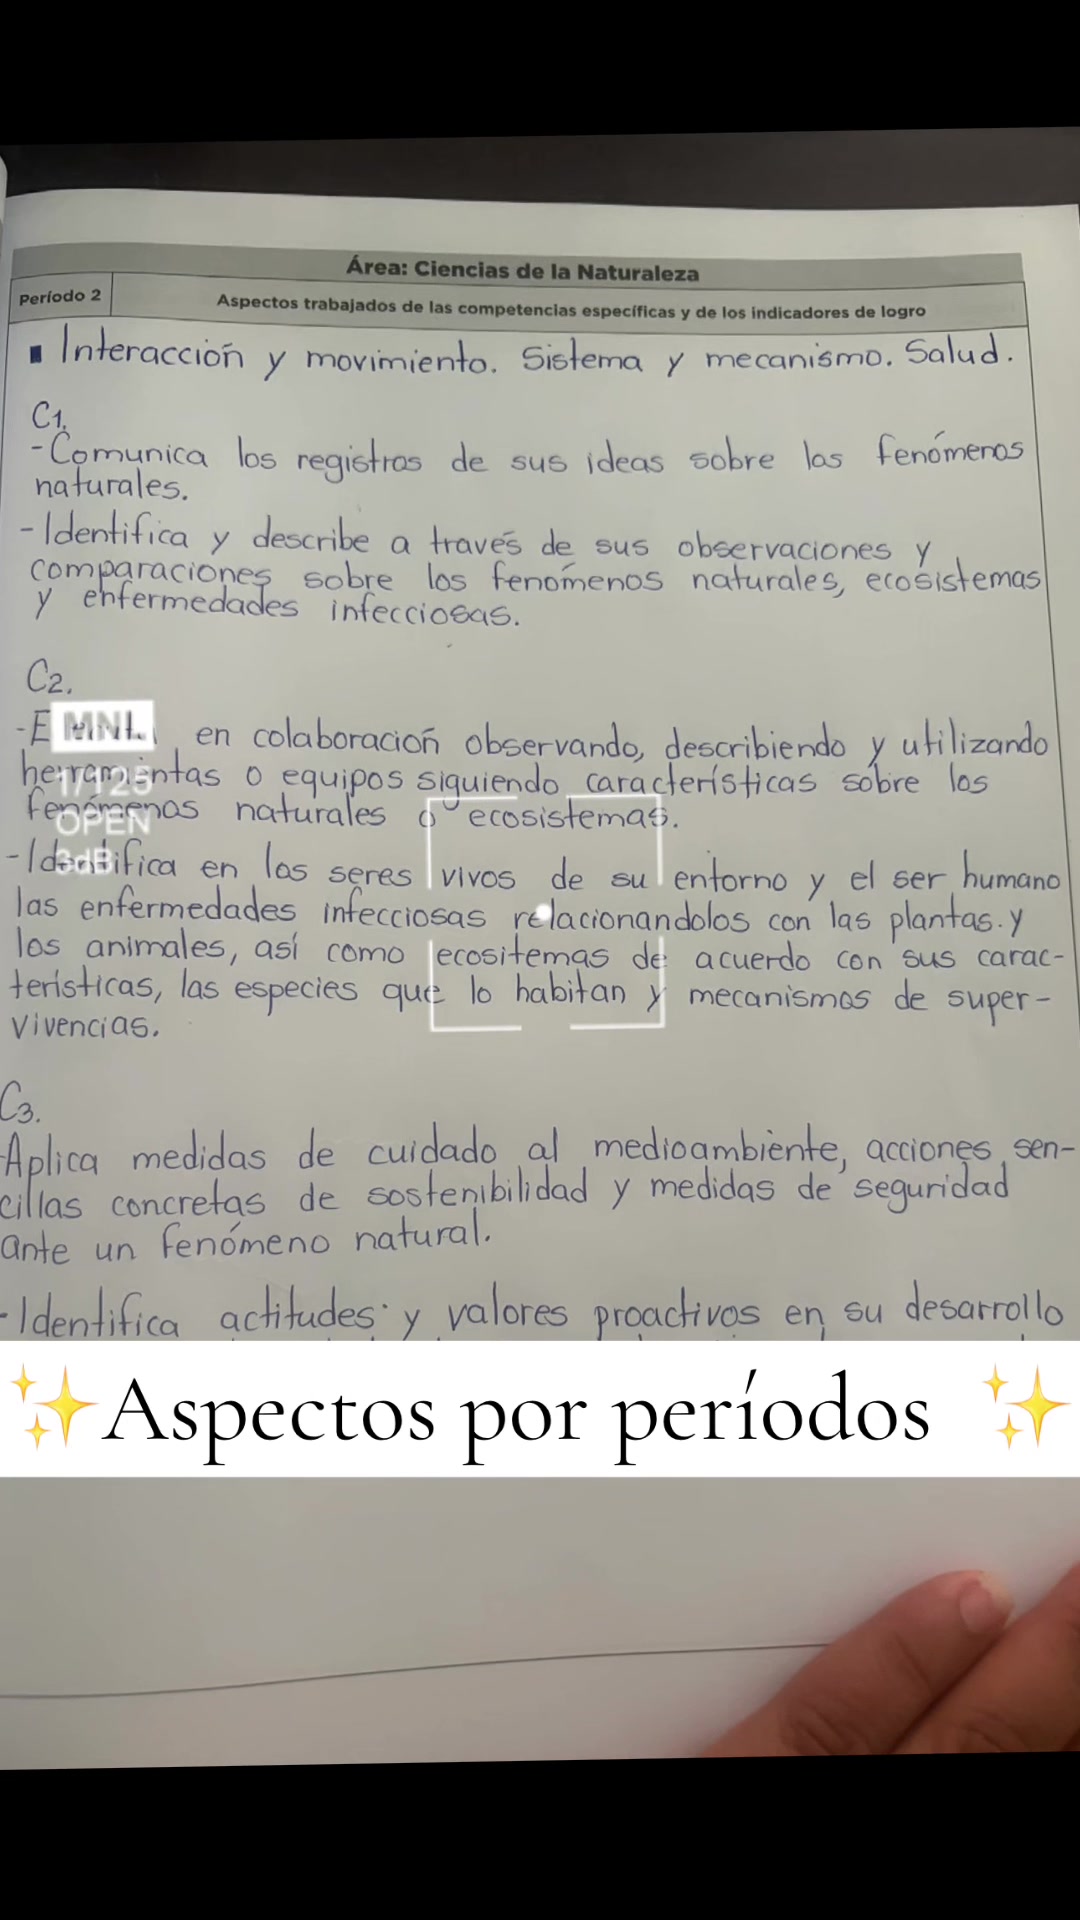 Área: Ciencias de la Naturaleza
Período 2
Aspectos trabajados de las competencias específicas y de los indicadores de logro
▪ Interacción y movimiento. Sistema y mecanismo. Salud.
C1.
- Comunica los registros de sus ideas sobre los fenómenos
naturales.
- Identifica y describe a través de sus observaciones y
comparaciones sobre los fenómenos naturales, ecosistemas
y enfermedades infecciosas.
C2.
- en colaboración observando, describiendo y utilizando
MNL
herramientas o equipos siguiendo características sobre los
1/125
fenómenos naturales o ecosistemas.
OPEN
- Identifica en los seres vivos de su entorno y el ser humano
3dB
las enfermedades infecciosas relacionandolos con las plantas. y
los animales, así como ecositemas de acuerdo con sus carac-
terísticas, las especies que lo habitan y mecanismos de super-
vivencias.
C3.
- Aplica medidas de cuidado al medioambiente, acciones sen-
cillas concretas de sostenibilidad y medidas de seguridad
ante un fenómeno natural.
- Identifica actitudes y valores proactivos en su desarrollo
✨Aspectos por períodos ✨